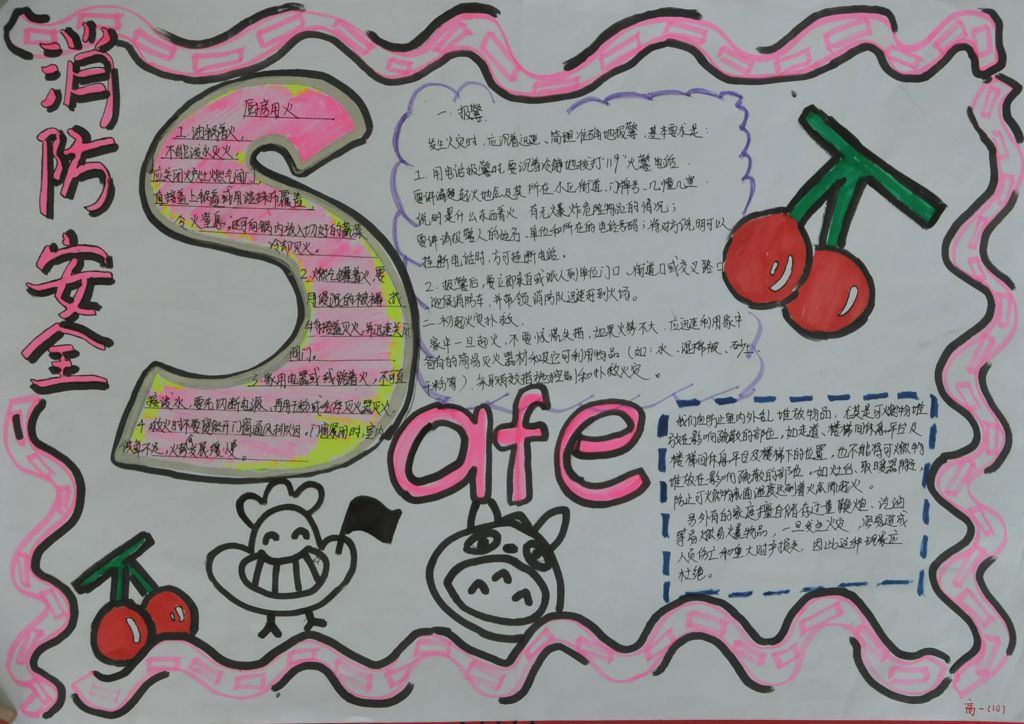 消防安全
厨房用火
1. 油锅着火,
不能泼水灭火,
应关闭炉灶燃气阀门,
直接盖上锅盖或用湿抹布覆盖,
令火窒息,还可向锅内放入切好的蔬菜
冷却灭火。
2. 燃气罐着火,要
用浸湿的被褥
捂盖灭火,并迅速关闭
阀门。
3. 家用电器或线路着火,不可直
接泼水,要先切断电源,再用干粉或气体灭火器灭火。
4. 救火时不要贸然开门窗
Safe
一、报警
发生火灾时,应沉着迅速、简理准确地报警,基本要求是:
1. 用电话报警时要沉着冷静地拨打"119"火警电话
要讲清楚起火地点及其所在小区街道、门牌号、几幢几室
说明是什么东西着火、有无爆炸危险物品的情况;
要讲清报警人的姓名、单位和所在的电话号码;待对方说明可以
挂断电话时,方可挂断电话。
2. 报警后,要立即亲自或派人到单位门口、街道口或交叉路口
迎候消防车,并带领消防队迅速赶到火场。
二、初起火灾扑救
家中一旦起火,不要惊慌失措,如果火势不大,应迅速利用家中
备有的简易灭火器材和其它可利用物品(如:水、湿棉被、砂土、
干粉等)采取有效措施控制和扑救火灾。
我们应防止室内外乱堆放物品,尤其是可燃物堆
放在影响疏散的部位,如走道、楼梯间休息平台及
楼梯间休息平台及楼梯下的位置,也不能将可燃物
堆放在影响疏散的部位。如灶台、取暖器附近,
防止可燃物表面温度达到着火点而起火。
另外有的家庭擅自储存过量鞭炮、汽油
等易燃易爆物品,一旦发生火灾,容易造成
人员伤亡和重大财产损失,因此这种现象应
杜绝。
高一(10)